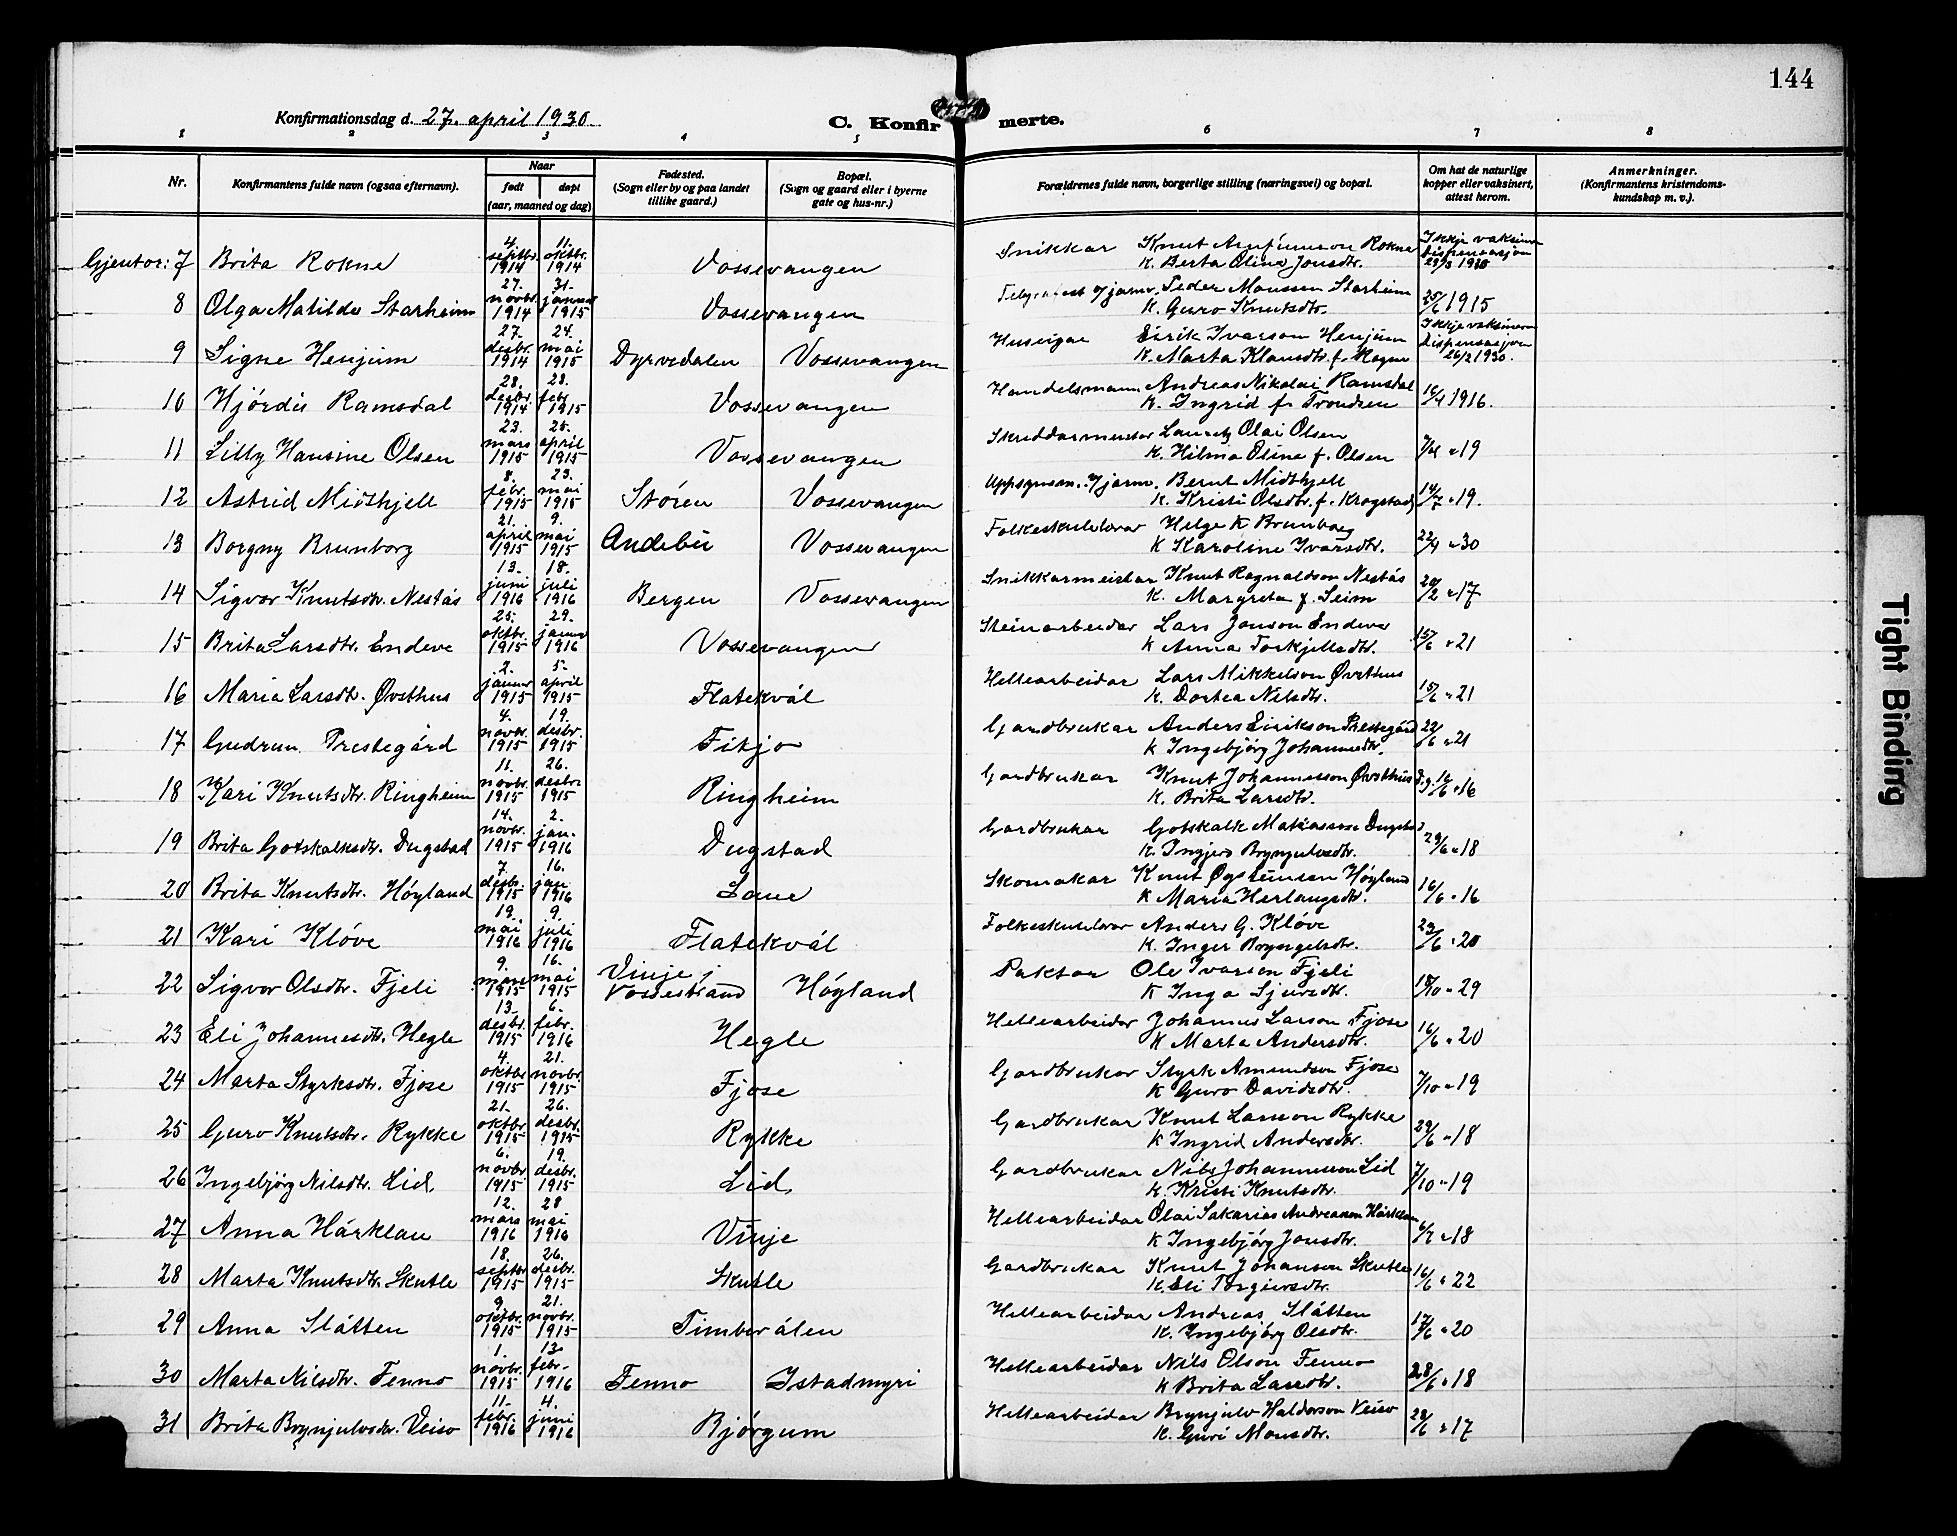 144
Konfirmationsdag d. 27. april 1930.
C. Konfirmerte.
1 2 3 4 5 6 7 8
Nr.
Konfirmantens fulde navn (ogsaa efternavn).
Naar
født døpt
(aar, maaned og dag)
Fødested.
(Sogn eller by og paa landet
tillike gaard.)
Bopæl.
(Sogn og gaard eller i byerne
gate og hus-nr.)
Forældrenes fulde navn, borgerlige stilling (næringsvei) og bopæl.
Om hat de naturlige
kopper eller vaksinert,
attest herom.
Anmerkninger.
(Konfirmantens kristendoms-
kundskap m. v.).
Gjentor: 7 Brita Rokne 4. septbr. 1914 11. oktbr. 1914 Vossevangen Snikkar Knut Rokne
K. Berta Olina Jonsdtr. Ikkje vaksinera Dispensasjon 1930
8 Olga Matilde Starheim 27. novbr. 1914 31. januar 1915 Vossevangen Peder Monssen Starheim
K. Guro Knutsdtr. 25/6 1915
9 Signe Henjum 27. desbr. 1914 24. mai 1915 Dyrvedalen Vossevangen Huseigar Eirik Ivarson Henjum
K. Marta Klausdtr. f. Ikkje vaksinera Dispensasjon 26/2 1930.
10 Hjördis Ramsdal 28. desbr. 1914 28. febr. 1915 Vossevangen Handelsmann Andreas Nikolai Ramsdal
K. Ingrid f. Trondsen 16/4 1916.
11 Lilly Hansine Olsen 23. mars 1915 25. april 1915 Vossevangen Skreddarmeister Olai Olsen
K. Hilma Oline f. Olsen " 19
12 Astrid Midthjell 8. febr. 1915 23. mai 1915 Støren Vossevangen Uppsynsm. v/ jarnv. Bernt Midthjell
K. Kristi Olsdtr. f. Krogstad 14/7 " 19.
13 Borgny Brunborg 21. april 1915 9. mai 1915 Andebu Vossevangen Folkeskulelærar Helge K Brunborg
K Karoline Ivarsdtr. 22/4 " 30
14 Sigvor Knutsdtr. Nestås 13. juni 1916 18. juli 1916 Bergen Vossevangen Snikkarmeistar Knut Ragnaldson Nestås
K. Margreta f. Seim 20/2 " 17
15 Brita Larsdtr. Endeve 25. oktbr. 1915 29. januar 1916 Vossevangen Steinarbeidar Lars Jonson Endeve
K Anna Torkjellsdtr. 15/6 " 21
16 Maria Larsdtr. Øvsthus 2. januar 1915 5. april 1915 Flatekvål Hellearbeidar Lars Mikkelson Øvsthus
K. Dortea Nilsdtr. 15/6 " 21
17 Gudrun Prestegård 4. novbr. 1915 19. desbr. 1915 Fitjo Gardbrukar Anders Eirikson Prestegård
K Ingebjörg Johannesdtr. 22/6 " 21
18 Kari Knutsdtr. Ringheim 11. novbr. 1915 26. desbr. 1915 Ringheim Gardbrukar Knut Johannesson Øvsthus
K. Brita Larsdtr. " 16
19 Brita Gotskalksdtr. Dugstad 14. novbr. 1915 2. jan. 1916 Dugstad Gardbrukar Gotskalk Matiasson Dugstad
K. Ingjerd Brynjulvsdtr. 29/6 " 18
20 Brita Knutsdtr. Höyland 7. desbr. 1915 16. jan. 1916 Lone Skomakar Knut Øysteinson Höyland
K Maria Herlaugsdtr. 16/6 " 16
21 Kari Klöve 19. mai 1916 9. juli 1916 Flatekvål Folkeskulelærar Anders G. Klöve
K. Inger Bryngelsdtr. 23/6 " 20
22 Sigvor Olsdtr. Fjeli 9. mars 1915 16. mai 1915 Vinje, Vossestrand Höyland Paktar Ole Ivarson Fjeli
K Inga Sjursdtr. 18/10 " 29
23 Eli Johannesdtr. Hegle 13. desbr. 1915 6. febr. 1916 Hegle Hellearbeidar Johannes Larson Fjose
K Marta Andersdtr. 16/6 " 20
24 Marta Styrksdtr. Fjose 4. oktbr. 1915 21. novbr. 1915 Fjose Gardbrukar Styrk Amundson Fjose
K Guro Davidsdtr. 7/10 " 19
25 Guro Knutsdtr. Rykke 21. oktbr. 1915 26. desbr. 1915 Rykke Gardbrukar Knut Larsson Rykke
K Ingrid Andersdtr. 29/6 " 18
26 Ingebjörg Nilsdtr. Lid, 6. novbr. 1915 19. desbr. 1915 Lid, Gardbrukar Nils Johannesson Lid
K. Kristi Knutsdtr. 7/10 " 19
27 Anna Hårklau 12. mars 1916 28 mai 1916 Vinje Hellearbeidar Olai Sakarias Andreasson Hårklau
K Ingebjörg Jonsdtr. 6/7 " 18
28 Marta Knutsdtr. Skutle 18. septbr. 1915 26. desbr. 1915 Skutle Gardbrukar Knut Johanson Skutle
K. Eli Torgiersdtr. 16/6 " 22
29 Anna Slåtten 9. oktbr. 1915 21. novbr. 1915 Timbervålen Hellearbeidar Andreas Slåtten
K. Ingebjörg Olsdtr. 17/6 " 20
30 Marta Nilsdtr. Fenno 1. novbr. 1915 13. febr. 1916 Fenno Istadmyri Hellearbeidar Nils Olson Fenno
K Brita Larsdtr. 28/6 " 18
31 Brita Brynjulvsdtr. Veiso 11. febr. 1916 4. juni 1916 Björgum Hellearbeidar Brynjulv Haldorson Veiso
K. Guri Monsdtr. 28/6 " 17
Tight Binding